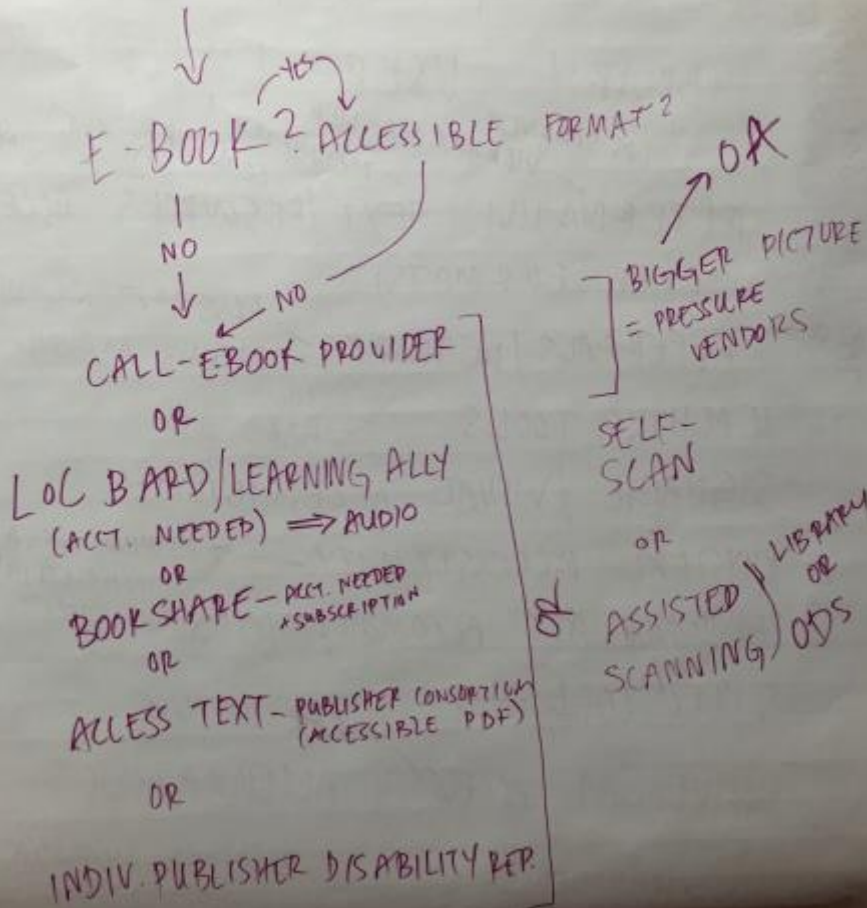 YES
E-BOOK? ACCESSIBLE FORMAT?
NO
NO
CALL-E-BOOK PROVIDER
OR
LOC BARD/LEARNING ALLY
(ACCT. NEEDED) ⇒ AUDIO
OR
BOOKSHARE - ACCT. NEEDED
+ SUBSCRIPTION
OR
ACCESS TEXT - PUBLISHER CONSORTIUM
(ACCESSIBLE PDF)
OR
INDIV. PUBLISHER DISABILITY REP.
OR
OA
BIGGER PICTURE
= PRESSURE
VENDORS
SELF-
SCAN
OR
ASSISTED
SCANNING
LIBRARY
OR
ODS